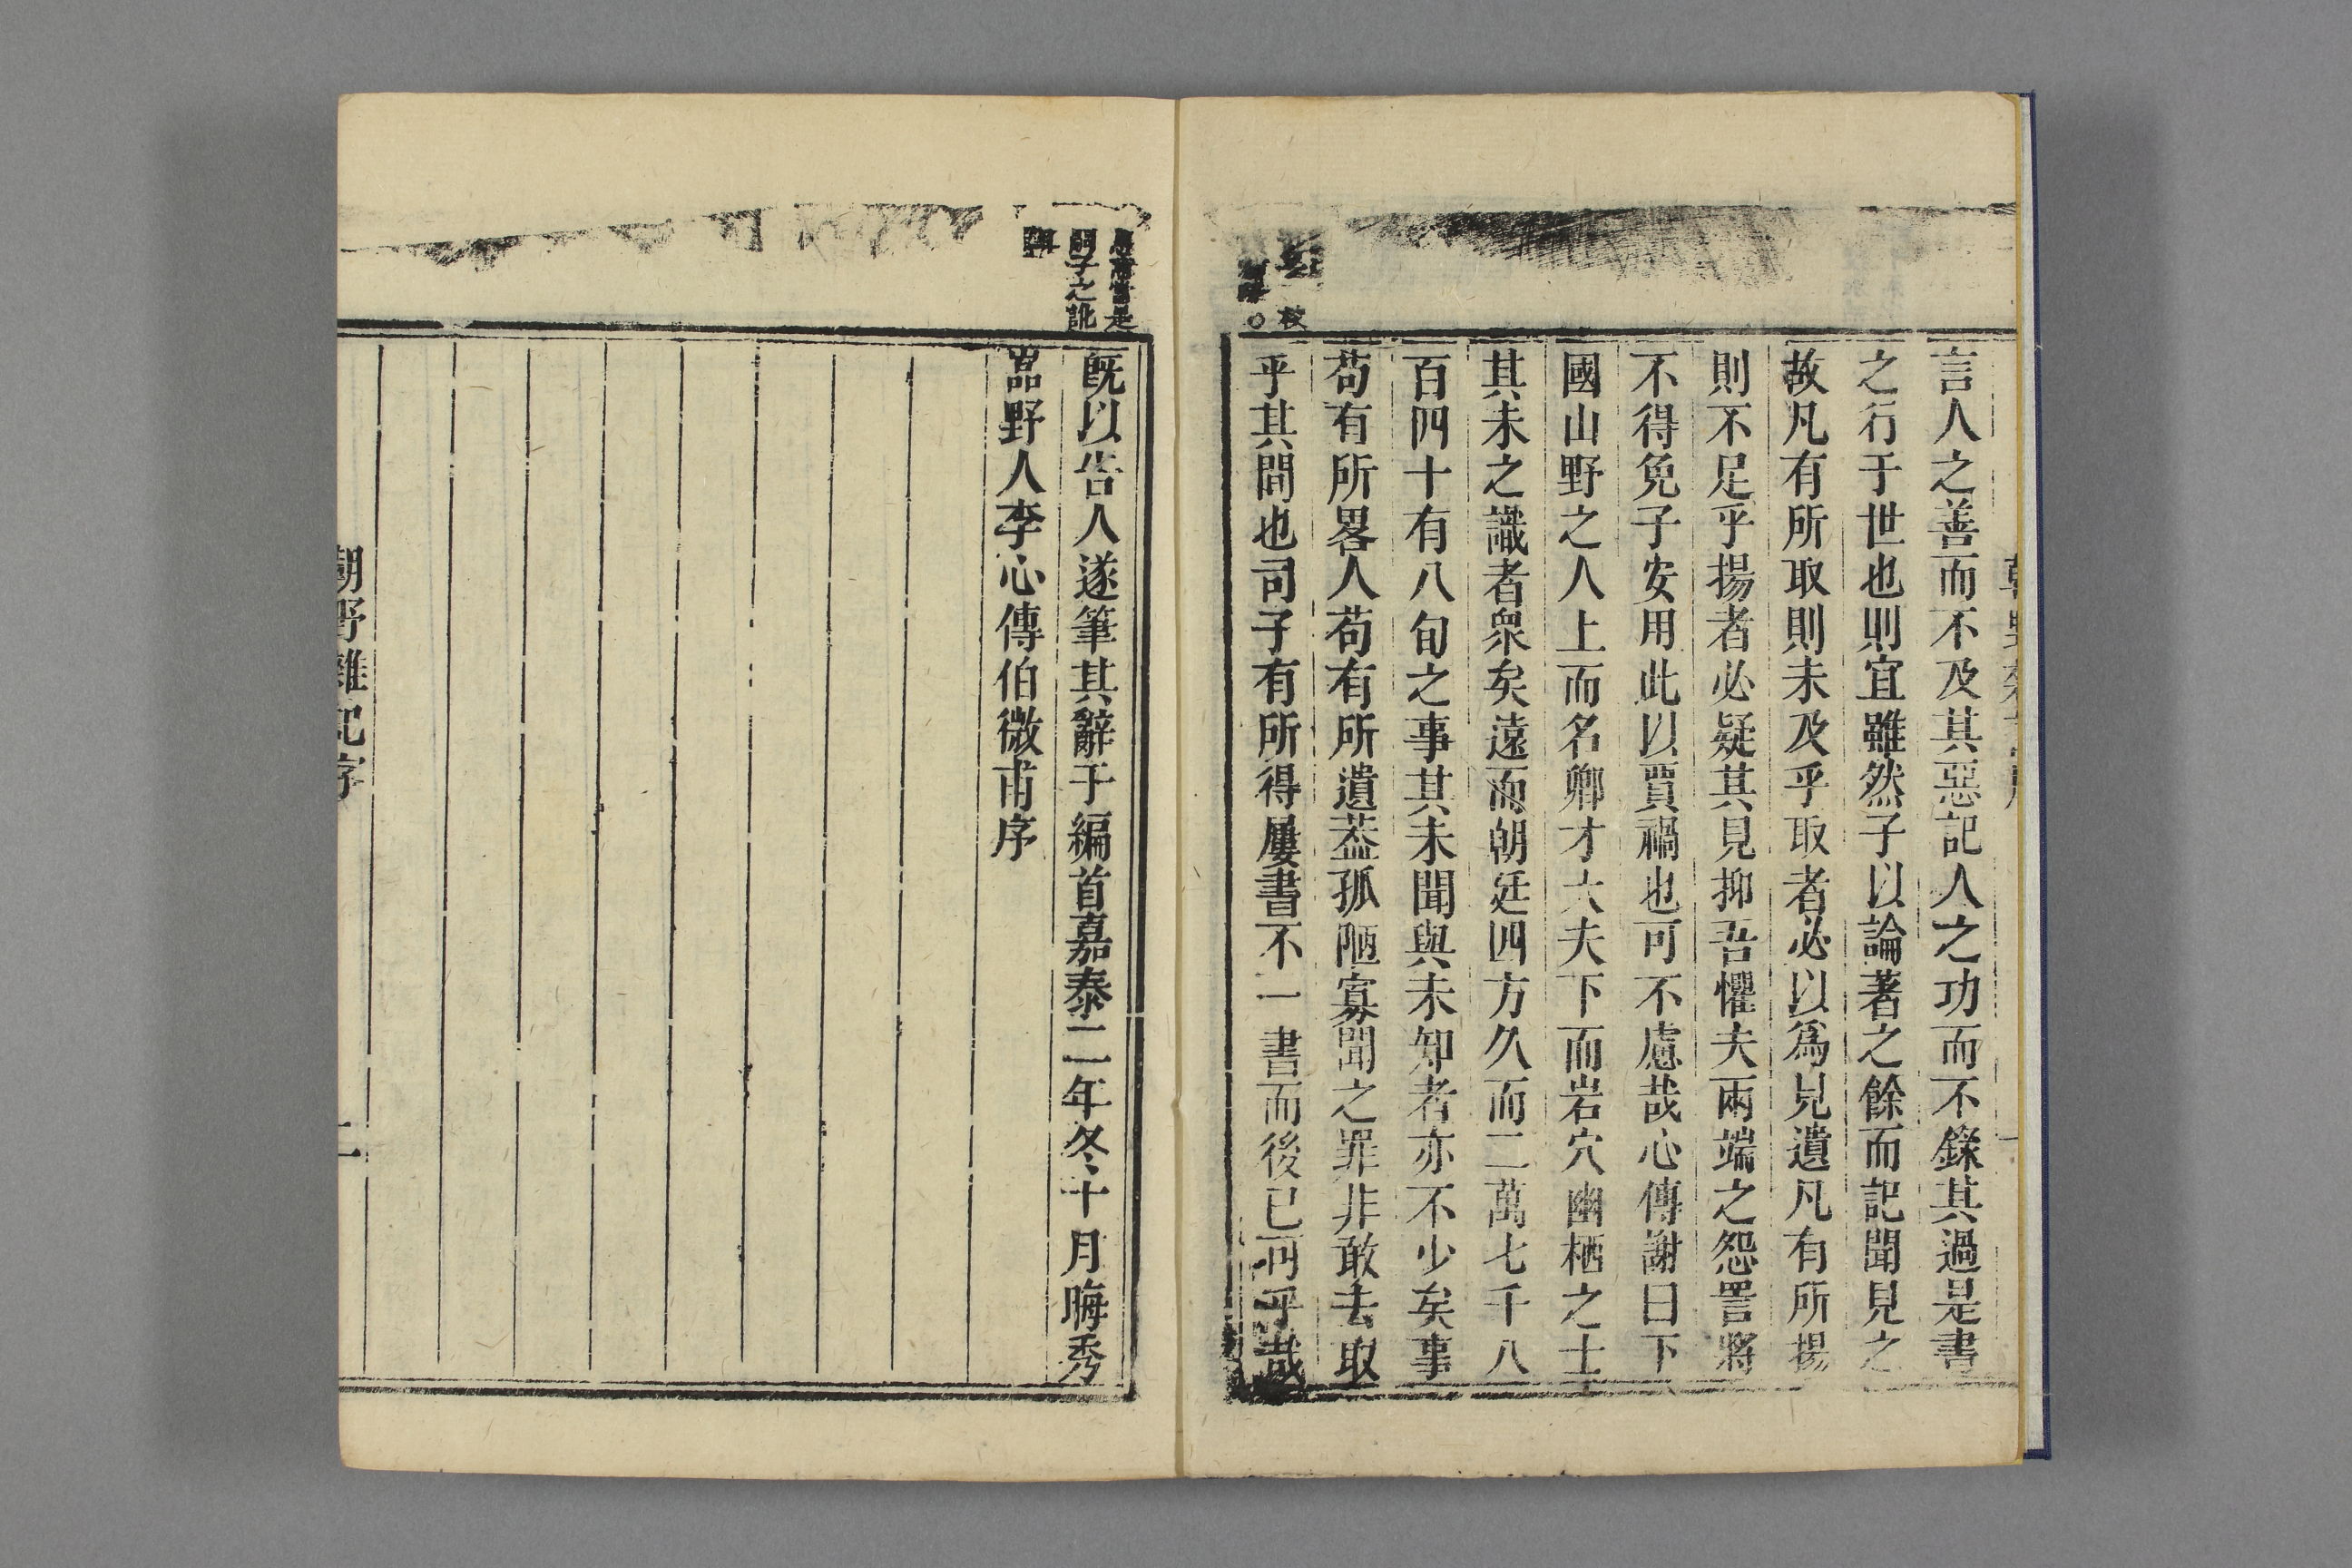 言人之善而不及其惡記人之功而不錄其過是書
之行于世也則宜雖然子以論著之餘而記聞見之
故凡有所取則未及乎取者必以爲見遺凡有所揚
則不足乎揚者必疑其見抑吾懼夫兩端之怨詈將
不得免子安用此以賈禍也可不慮哉心傳謝曰下
國山野之人上而名卿才大夫下而岩穴幽栖之士
其未之識者衆矣遠而朝廷四方久而二萬七千八
百四十有八旬之事其未聞與未知者亦不少矣事
苟有所畧人苟有所遺葢孤陋寡聞之罪非敢去取
乎其間也司子有所得屢書不一書而後已可乎哉
校
嗣子之訛
既以告人遂筆其辭于編首嘉泰二年冬十月晦秀
嵓野人李心傳伯微甫序
朝野雜記序
二